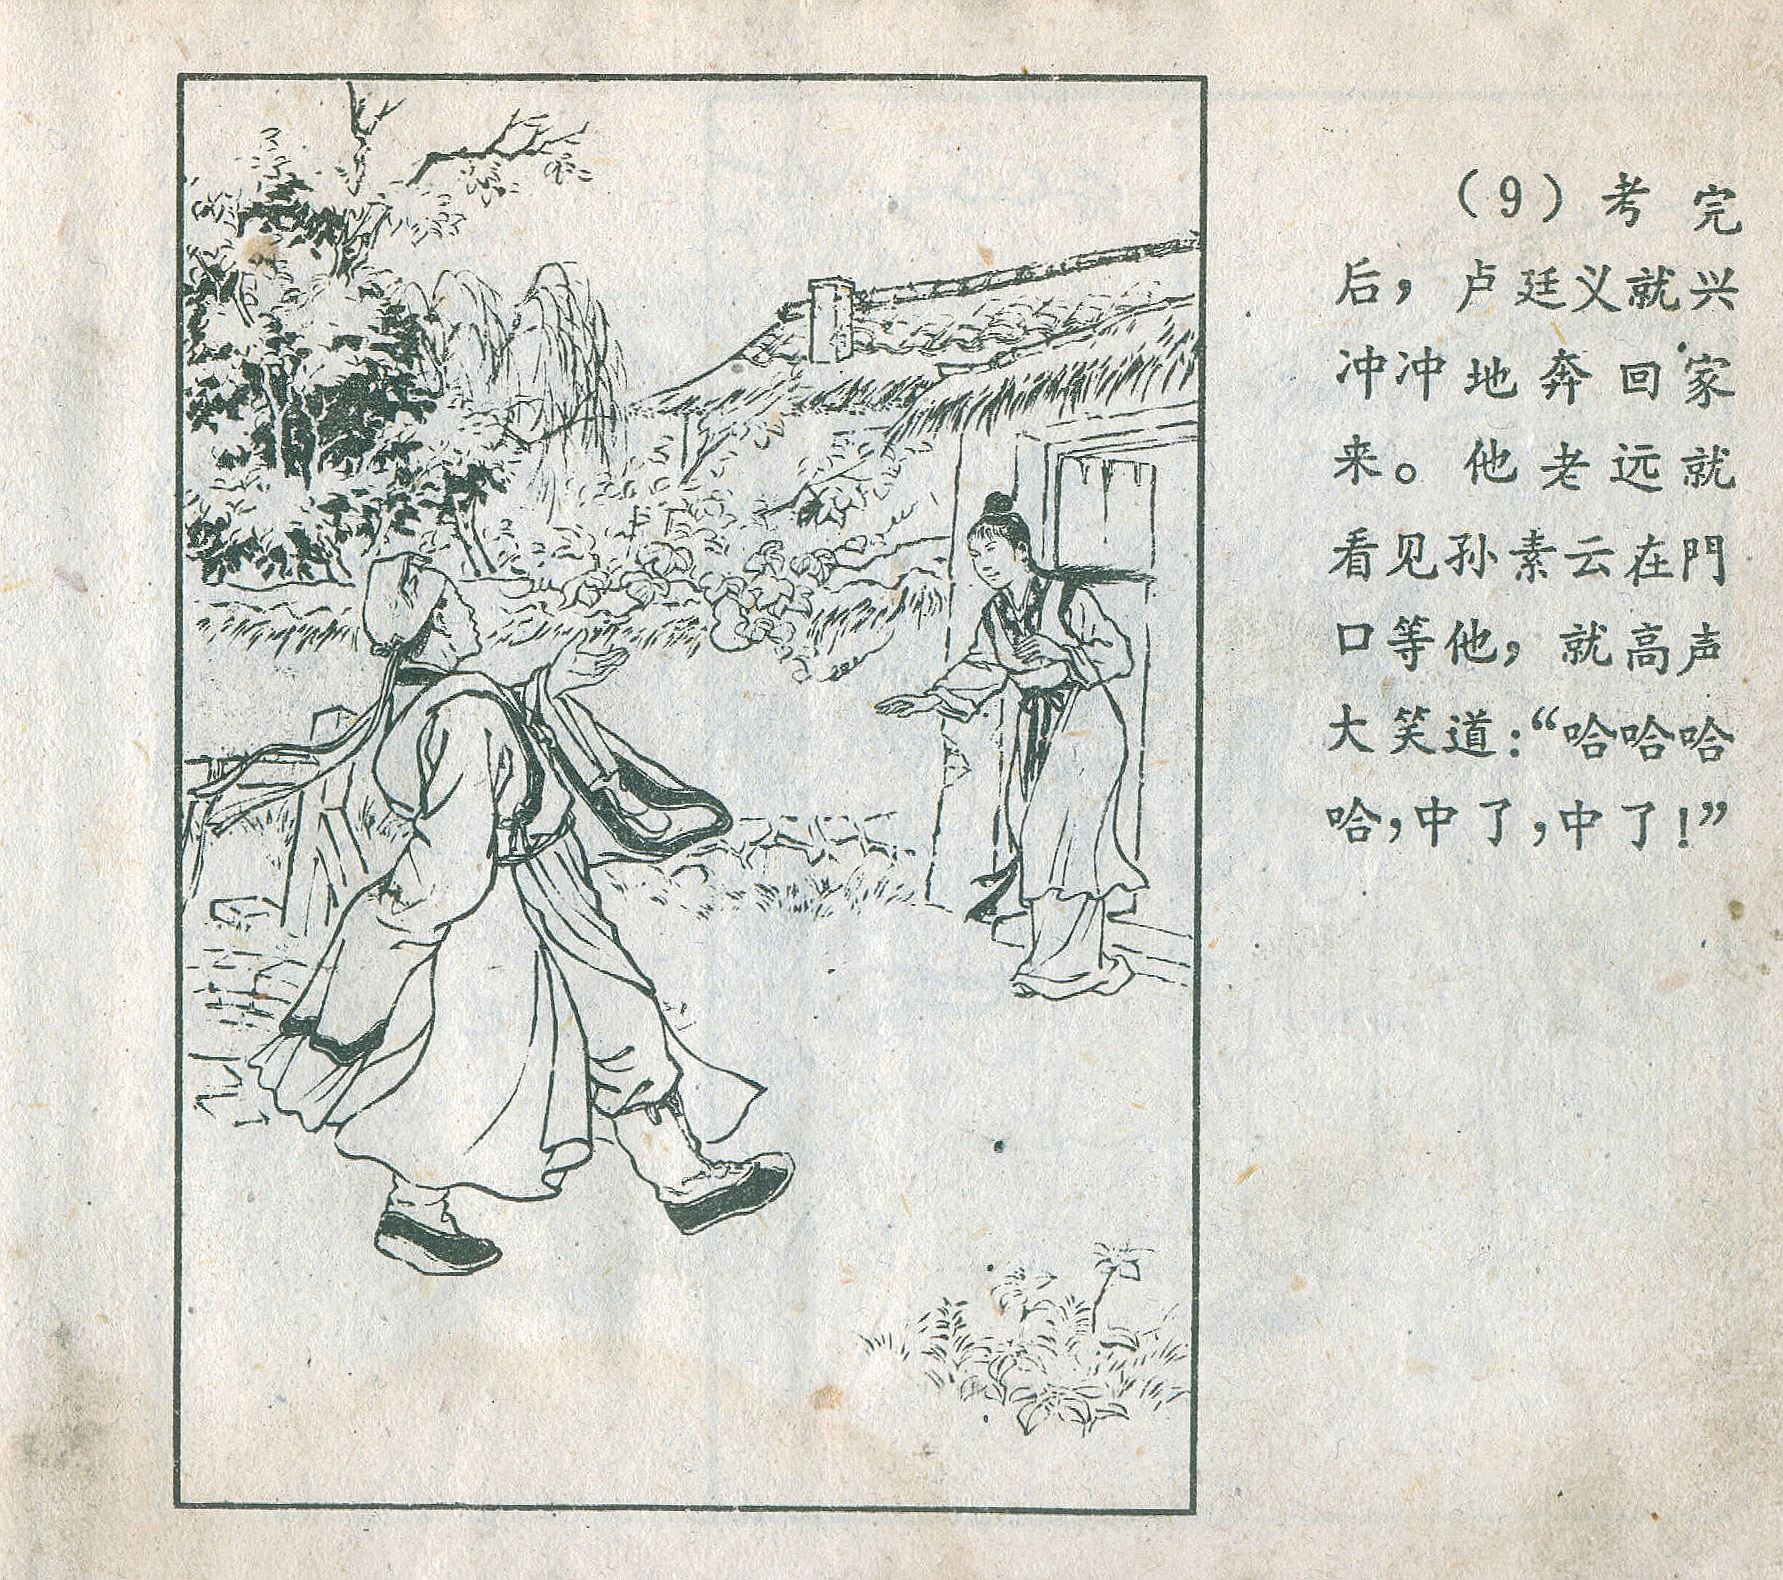 （9）考完
后，卢廷义就兴
冲冲地奔回家
来。他老远就
看见孙素云在門
口等他，就高声
大笑道：“哈哈哈
哈，中了，中了！”